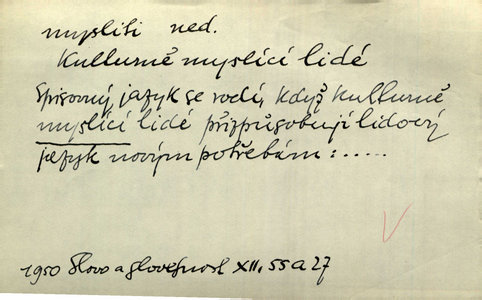 mysliti ned.
Kulturně myslící lidé
Spisovný jazyk se rodí, když kulturně
myslící lidé přizpůsobují lidový
jazyk novým potřebám: .....
V
1950 Slovo a slovesnost XII, 55 a 27